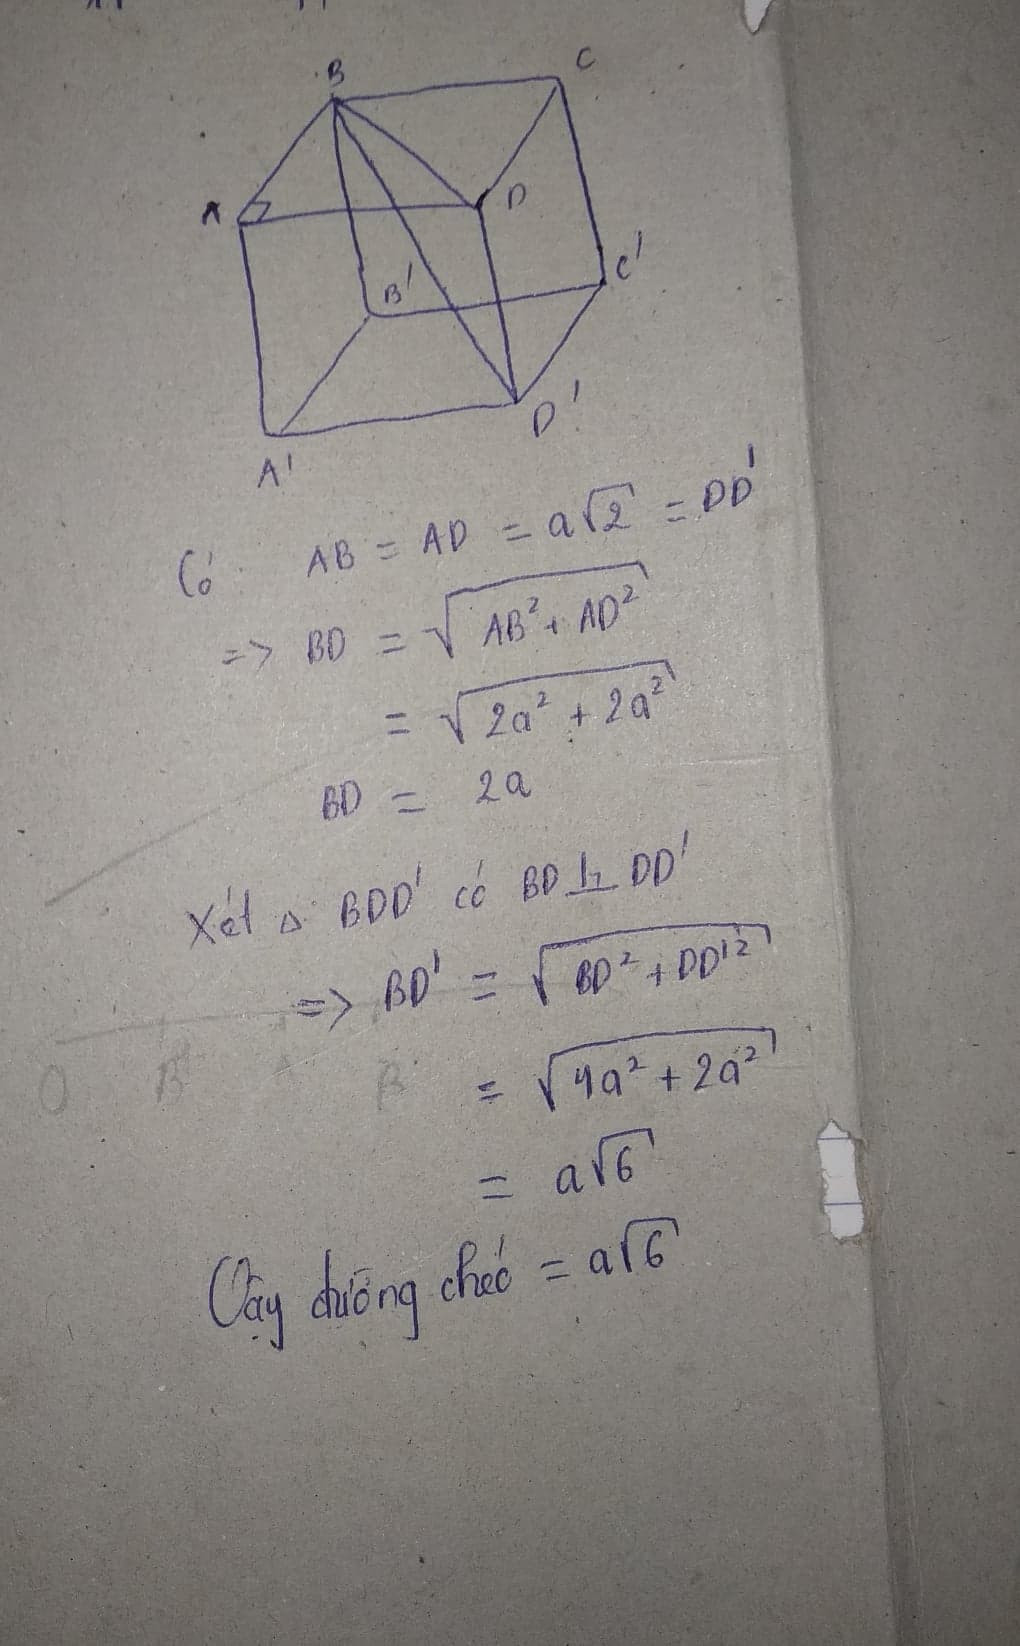 B
C
A
D
B'
C'
D'
A'
Có: AB = AD = a√2 = DD'
=> BD = √AB² + AD²
= √2a² + 2a²
BD = 2a
Xét Δ BDD' có BD ⊥ DD'
=> BD' = √BD² + DD'²
= √4a² + 2a²
= a√6
Vậy đường chéo = a√6